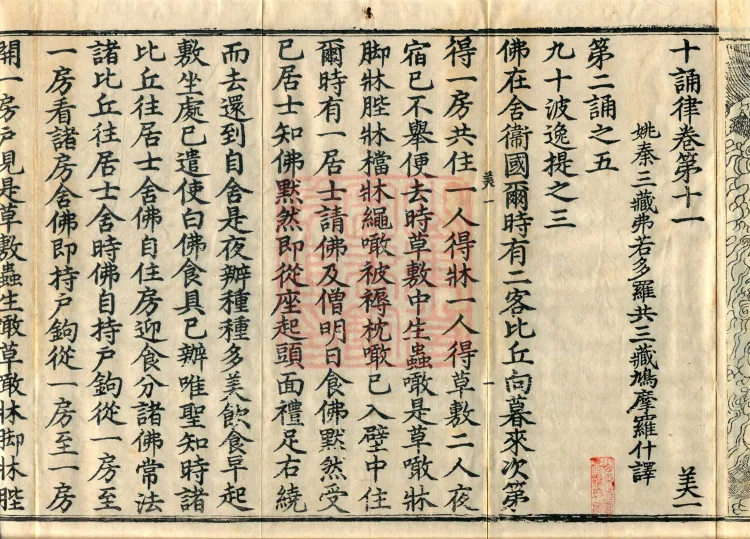 十誦律卷第十一 美一
姚秦三藏弗若多羅共三藏鳩摩羅什譯
第二誦之五
九十波逸提之三
佛在舍衞國爾時有二客比丘向暮來次第
美一 一
得一房共住一人得牀一人得草敷二人夜
宿已不舉便去時草敷中生蟲噉是草噉牀
脚牀陛牀檔牀繩噉被褥枕噉已入壁中住
爾時有一居士請佛及僧明日食佛默然受
已居士知佛默然即從座起頭面禮足右繞
而去還到自舍是夜辦種種多美飲食早起
敷坐處已遣使白佛食具已辦唯聖知時諸
比丘往居士舍佛自住房迎食分諸佛常法
諸比丘往居士舍時佛自持戶鉤從一房至
一房看諸房舍佛即持戶鉤從一房至一房
開一房戶見是草敷蟲生噉草噉牀脚牀陛